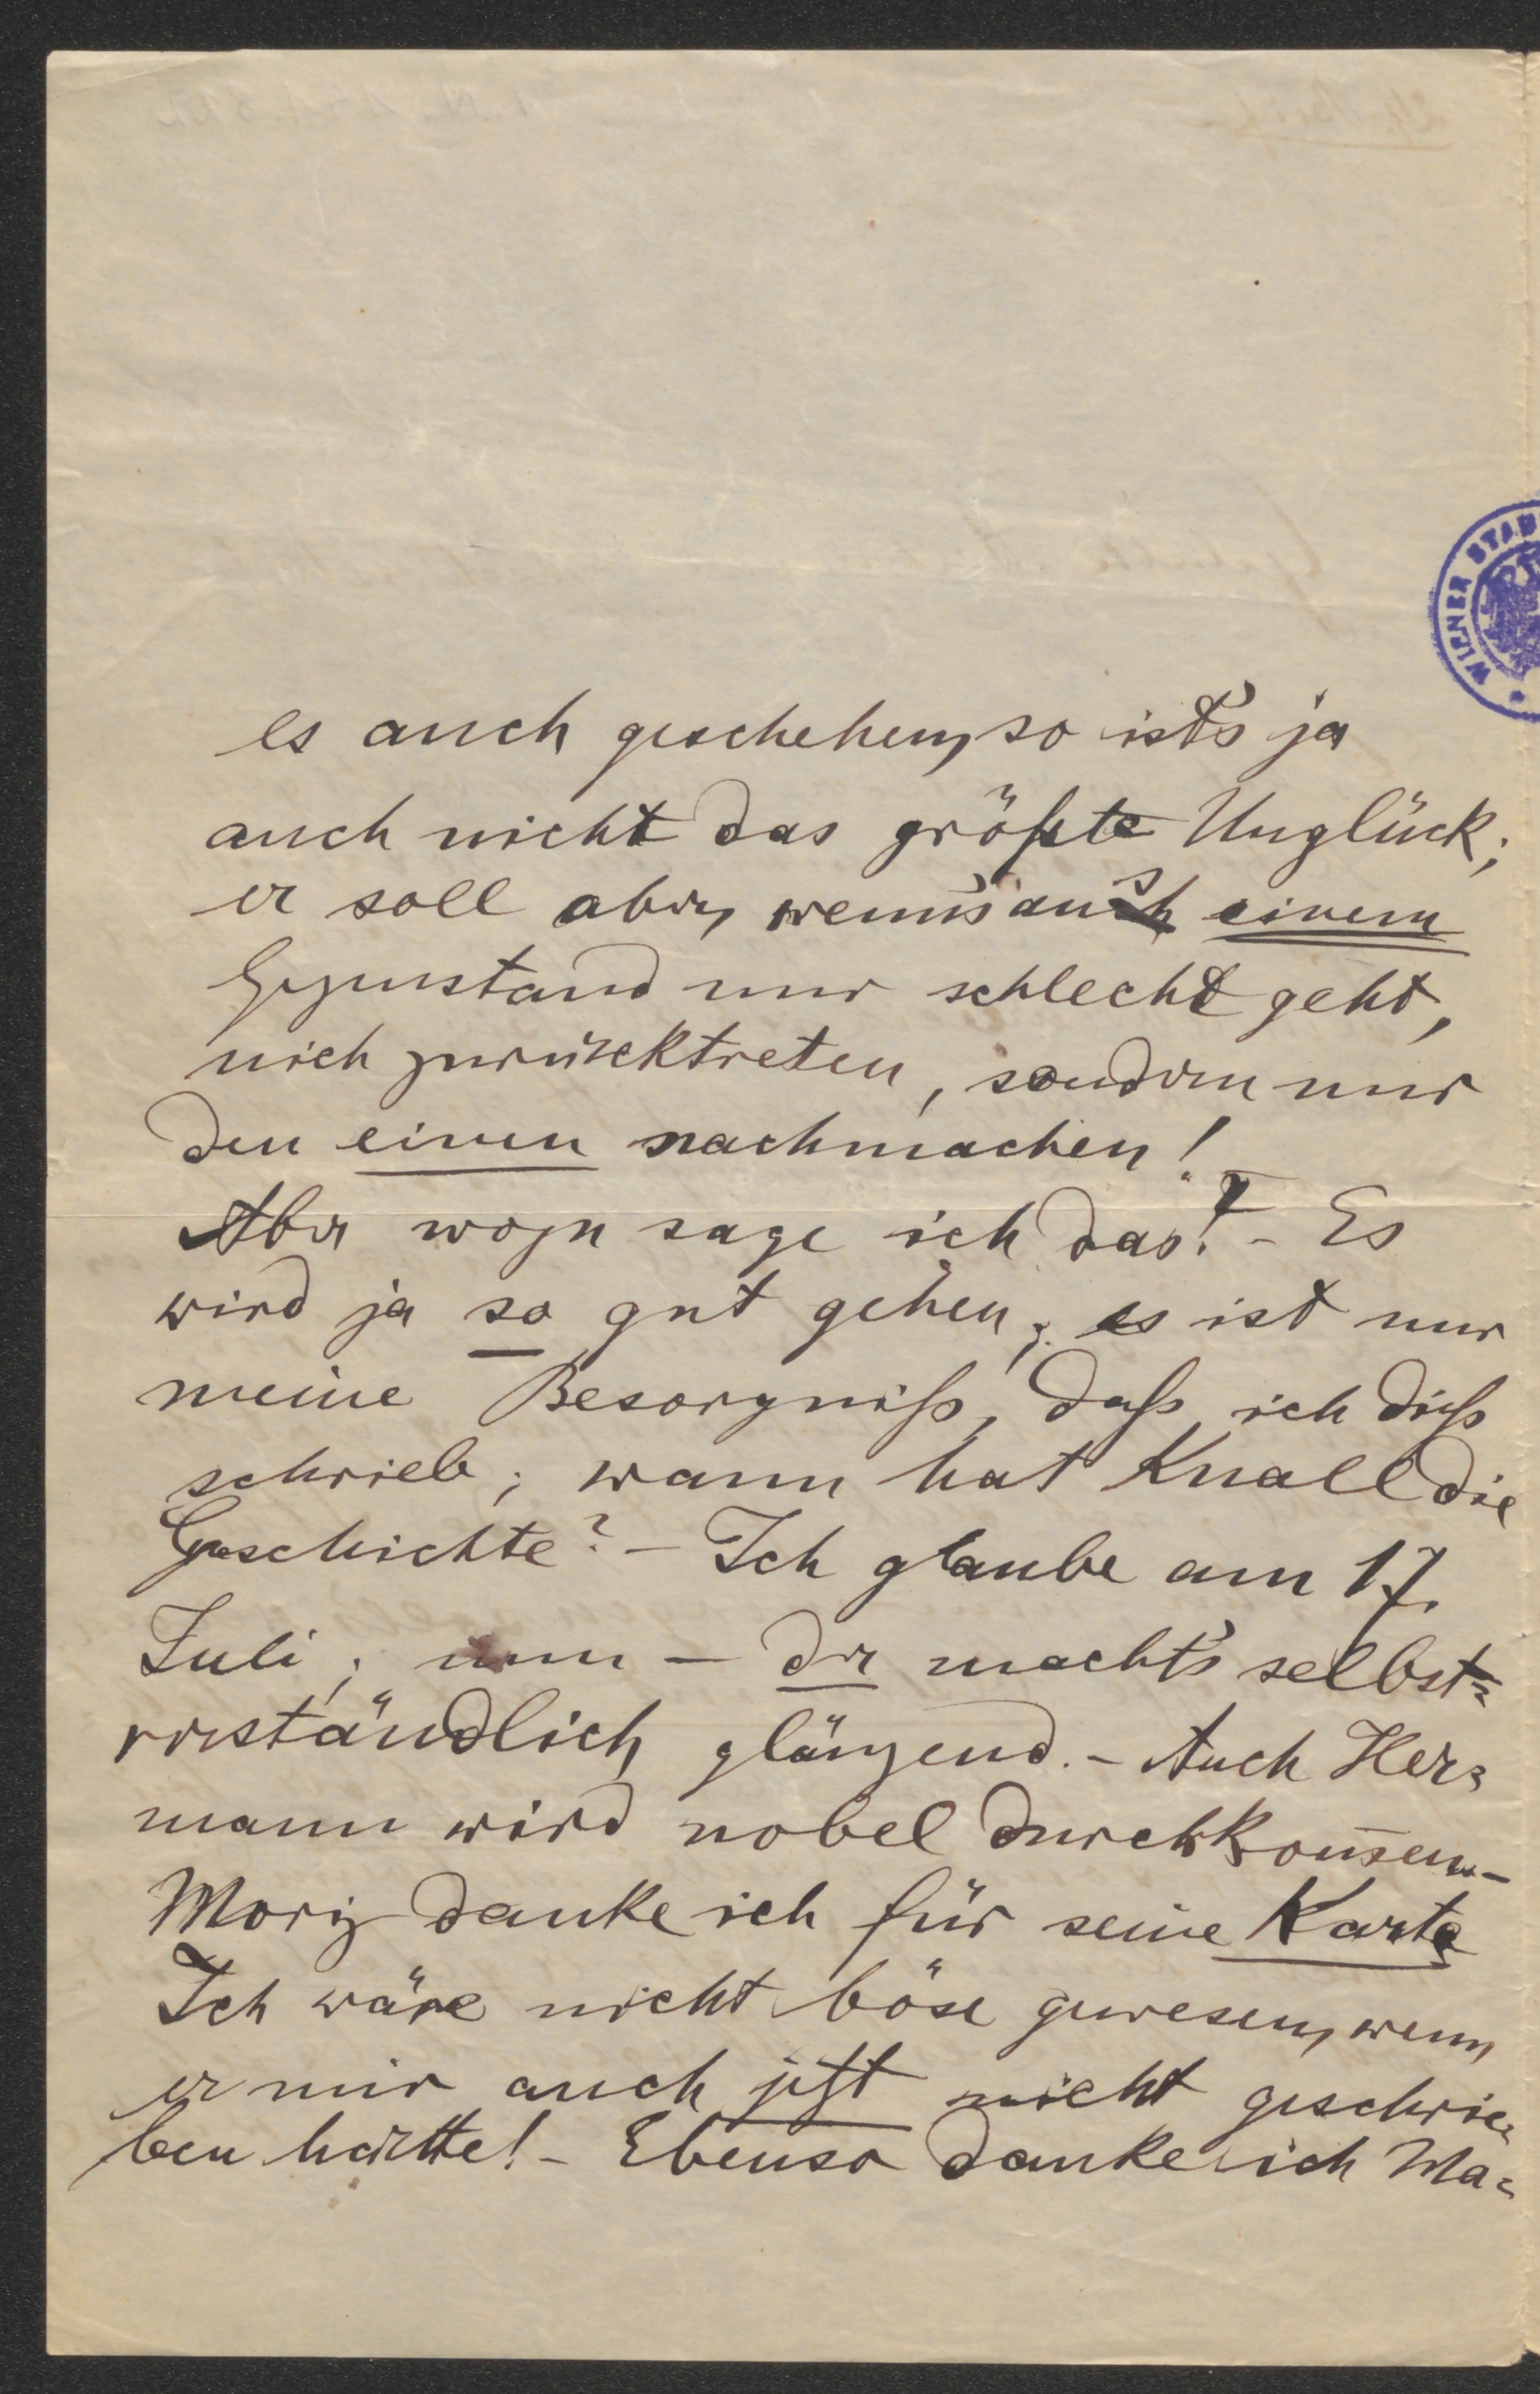 WIENER STAD
es auch geschehen, so ist's ja
auch nicht das größte Unglück;
er soll aber, wenn's aus einem
Gegenstand nur schlecht geht,
nich zurücktreten, sondern nur
den einen nachmachen!
Aber wozu sage ich das? - Es
wird ja so gut gehen; es ist nur
meine Besorgniß, daß ich dieß
schrieb; wann hat Knall die
Geschichte? - Ich glaube am 17.
Juli; nun - der macht's selbst=
verständlich glänzend. - Auch Her=
mann wird nobel durchkom̅en. -
Moriz danke ich für seine Karte
Ich wäre nicht böse gewesen, wenn
er mir auch jetzt nicht geschrie=
ben hätte! - Ebenso danke ich Ma=